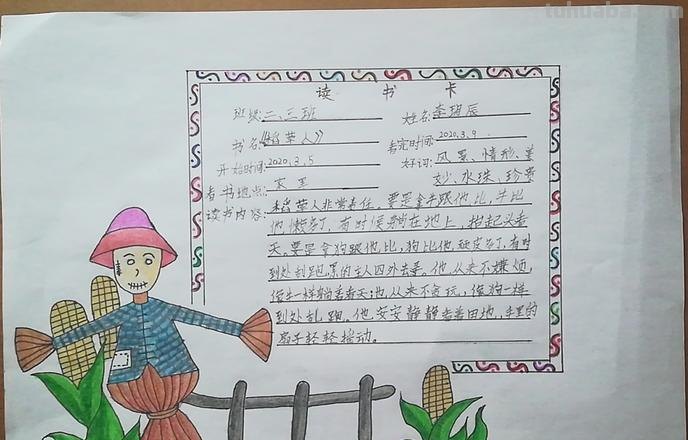 tuhuaba.com
读 书 卡
班级:二、三班 姓名:李玥辰
书名:《稻草人》 看完时间:2020.3.9
开始时间:2020.3.5 好词:风景、情形、美
看书地点:家里 妙、水珠、珍贵
读书内容:稻草人非常责任,要是拿牛跟他比,牛比
他懒多了,有时候躺在地上,抬起头看
天。要是拿狗跟他比,狗比他顽皮多了,有时
到处乱跑,累的主人四外去寻。他从来不嫌烦,
像牛一样躺着看天;也从来不贪玩,像狗一样
到处乱跑。他安安静静看着田地,手里的
扇子轻轻摇动。